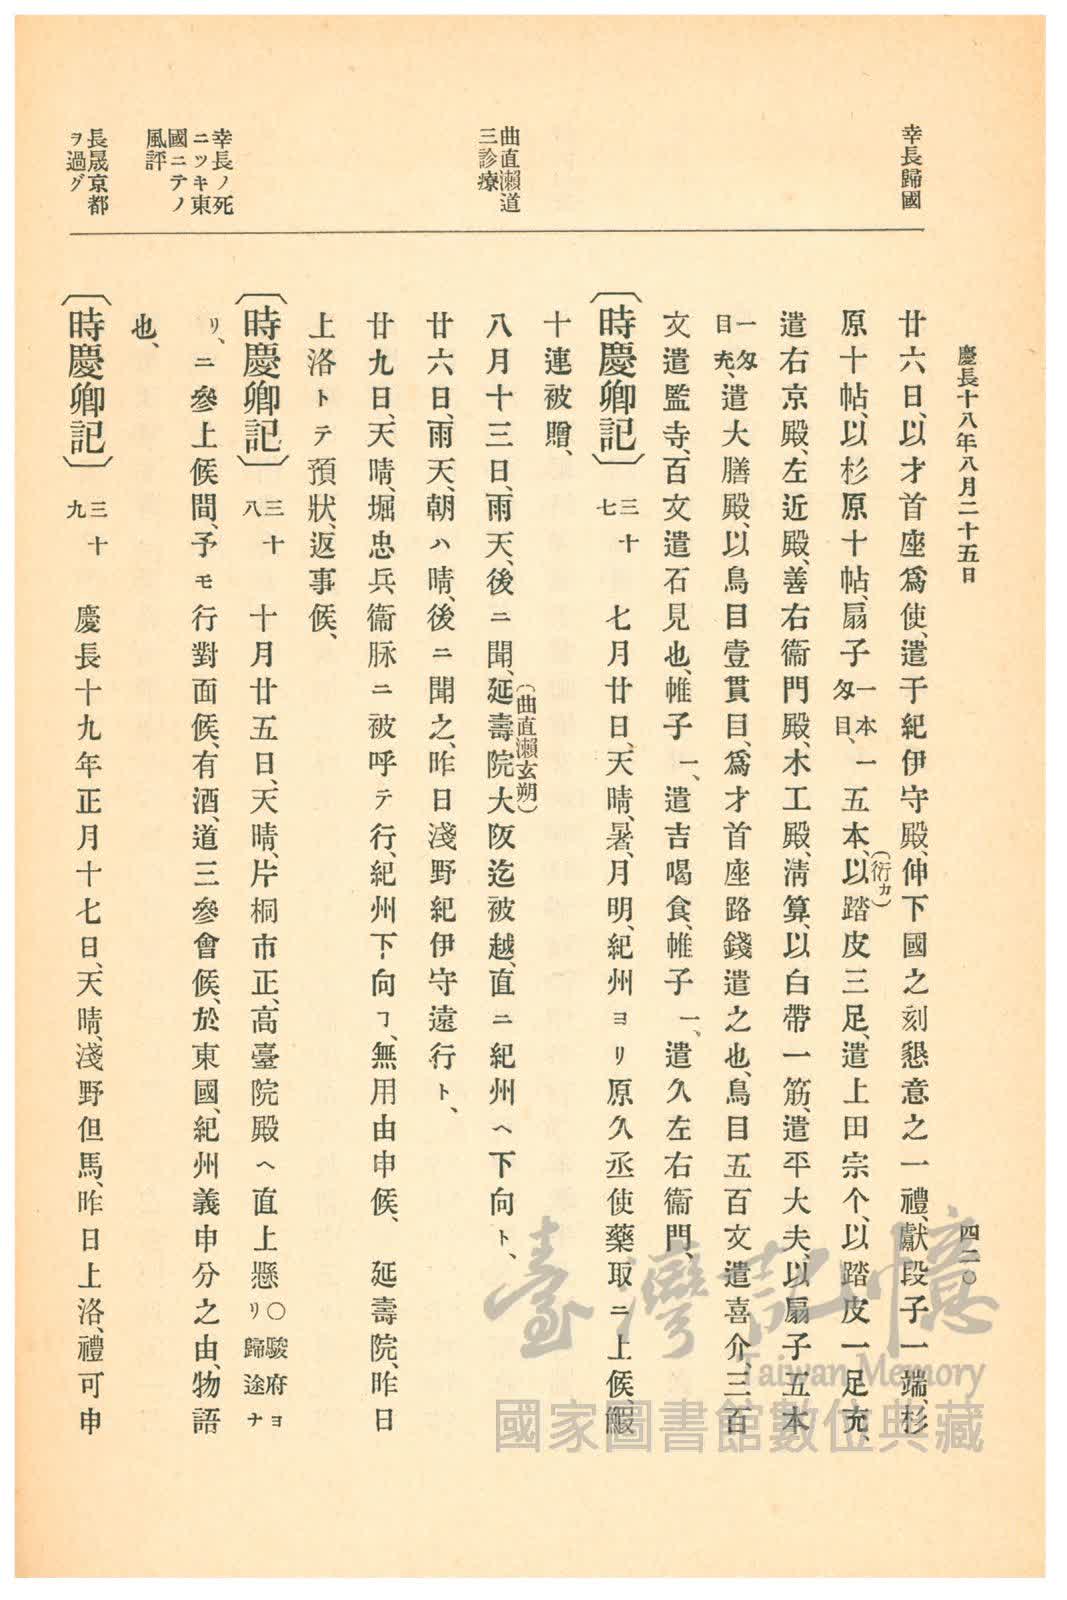 慶長十八年八月二十五日
四二〇
幸長歸國
曲直瀨道
三診療
幸長ノ死
ニツキ東
國ニテノ
風評
長晟京都
ヲ過グ
廿六日、以才首座爲使、遣于紀伊守殿、伸下國之刻懇意之一禮、獻段子一端、杉
原十帖、以杉原十帖、扇子一本一匁目、一五本、以(衍カ)踏皮三足、遣上田宗个、以踏皮一足充、
遣右京殿、左近殿、善右衞門殿、木工殿、淸算、以白帶一筋、遣平大夫、以扇子五本
一匁目充、遣大膳殿、以鳥目壹貫目、爲才首座路錢遣之也、鳥目五百文遣喜介、三百
文遣監寺、百文遣石見也、帷子一、遣吉喝食、帷子一、遣久左右衞門、
〔時慶卿記〕三十七 七月廿日、天晴、暑、月明、紀州ヨリ原久丞使藥取ニ上候、鰕
十連被贈、
八月十三日、雨天、後ニ聞、延壽院(曲直瀨玄朔)大阪迄被越、直ニ紀州ヘ下向ト、
廿六日、雨天、朝ハ晴、後ニ聞之、昨日淺野紀伊守遠行ト、
廿九日、天晴、堀忠兵衞脉ニ被呼テ行、紀州下向ヿ、無用由申候、 延壽院、昨日
上洛トテ預狀、返事候、
〔時慶卿記〕三十八 十月廿五日、天晴、片桐市正、高臺院殿ヘ直上懸○駿府ヨリ歸途ナ
リ、ニ參上候間、予モ行對面候、有酒、道三參會候、於東國、紀州義申分之由、物語
也、
〔時慶卿記〕三十九 慶長十九年正月十七日、天晴、淺野但馬、昨日上洛、禮可申
臺灣記憶
Taiwan Memory
國家圖書館數位典藏